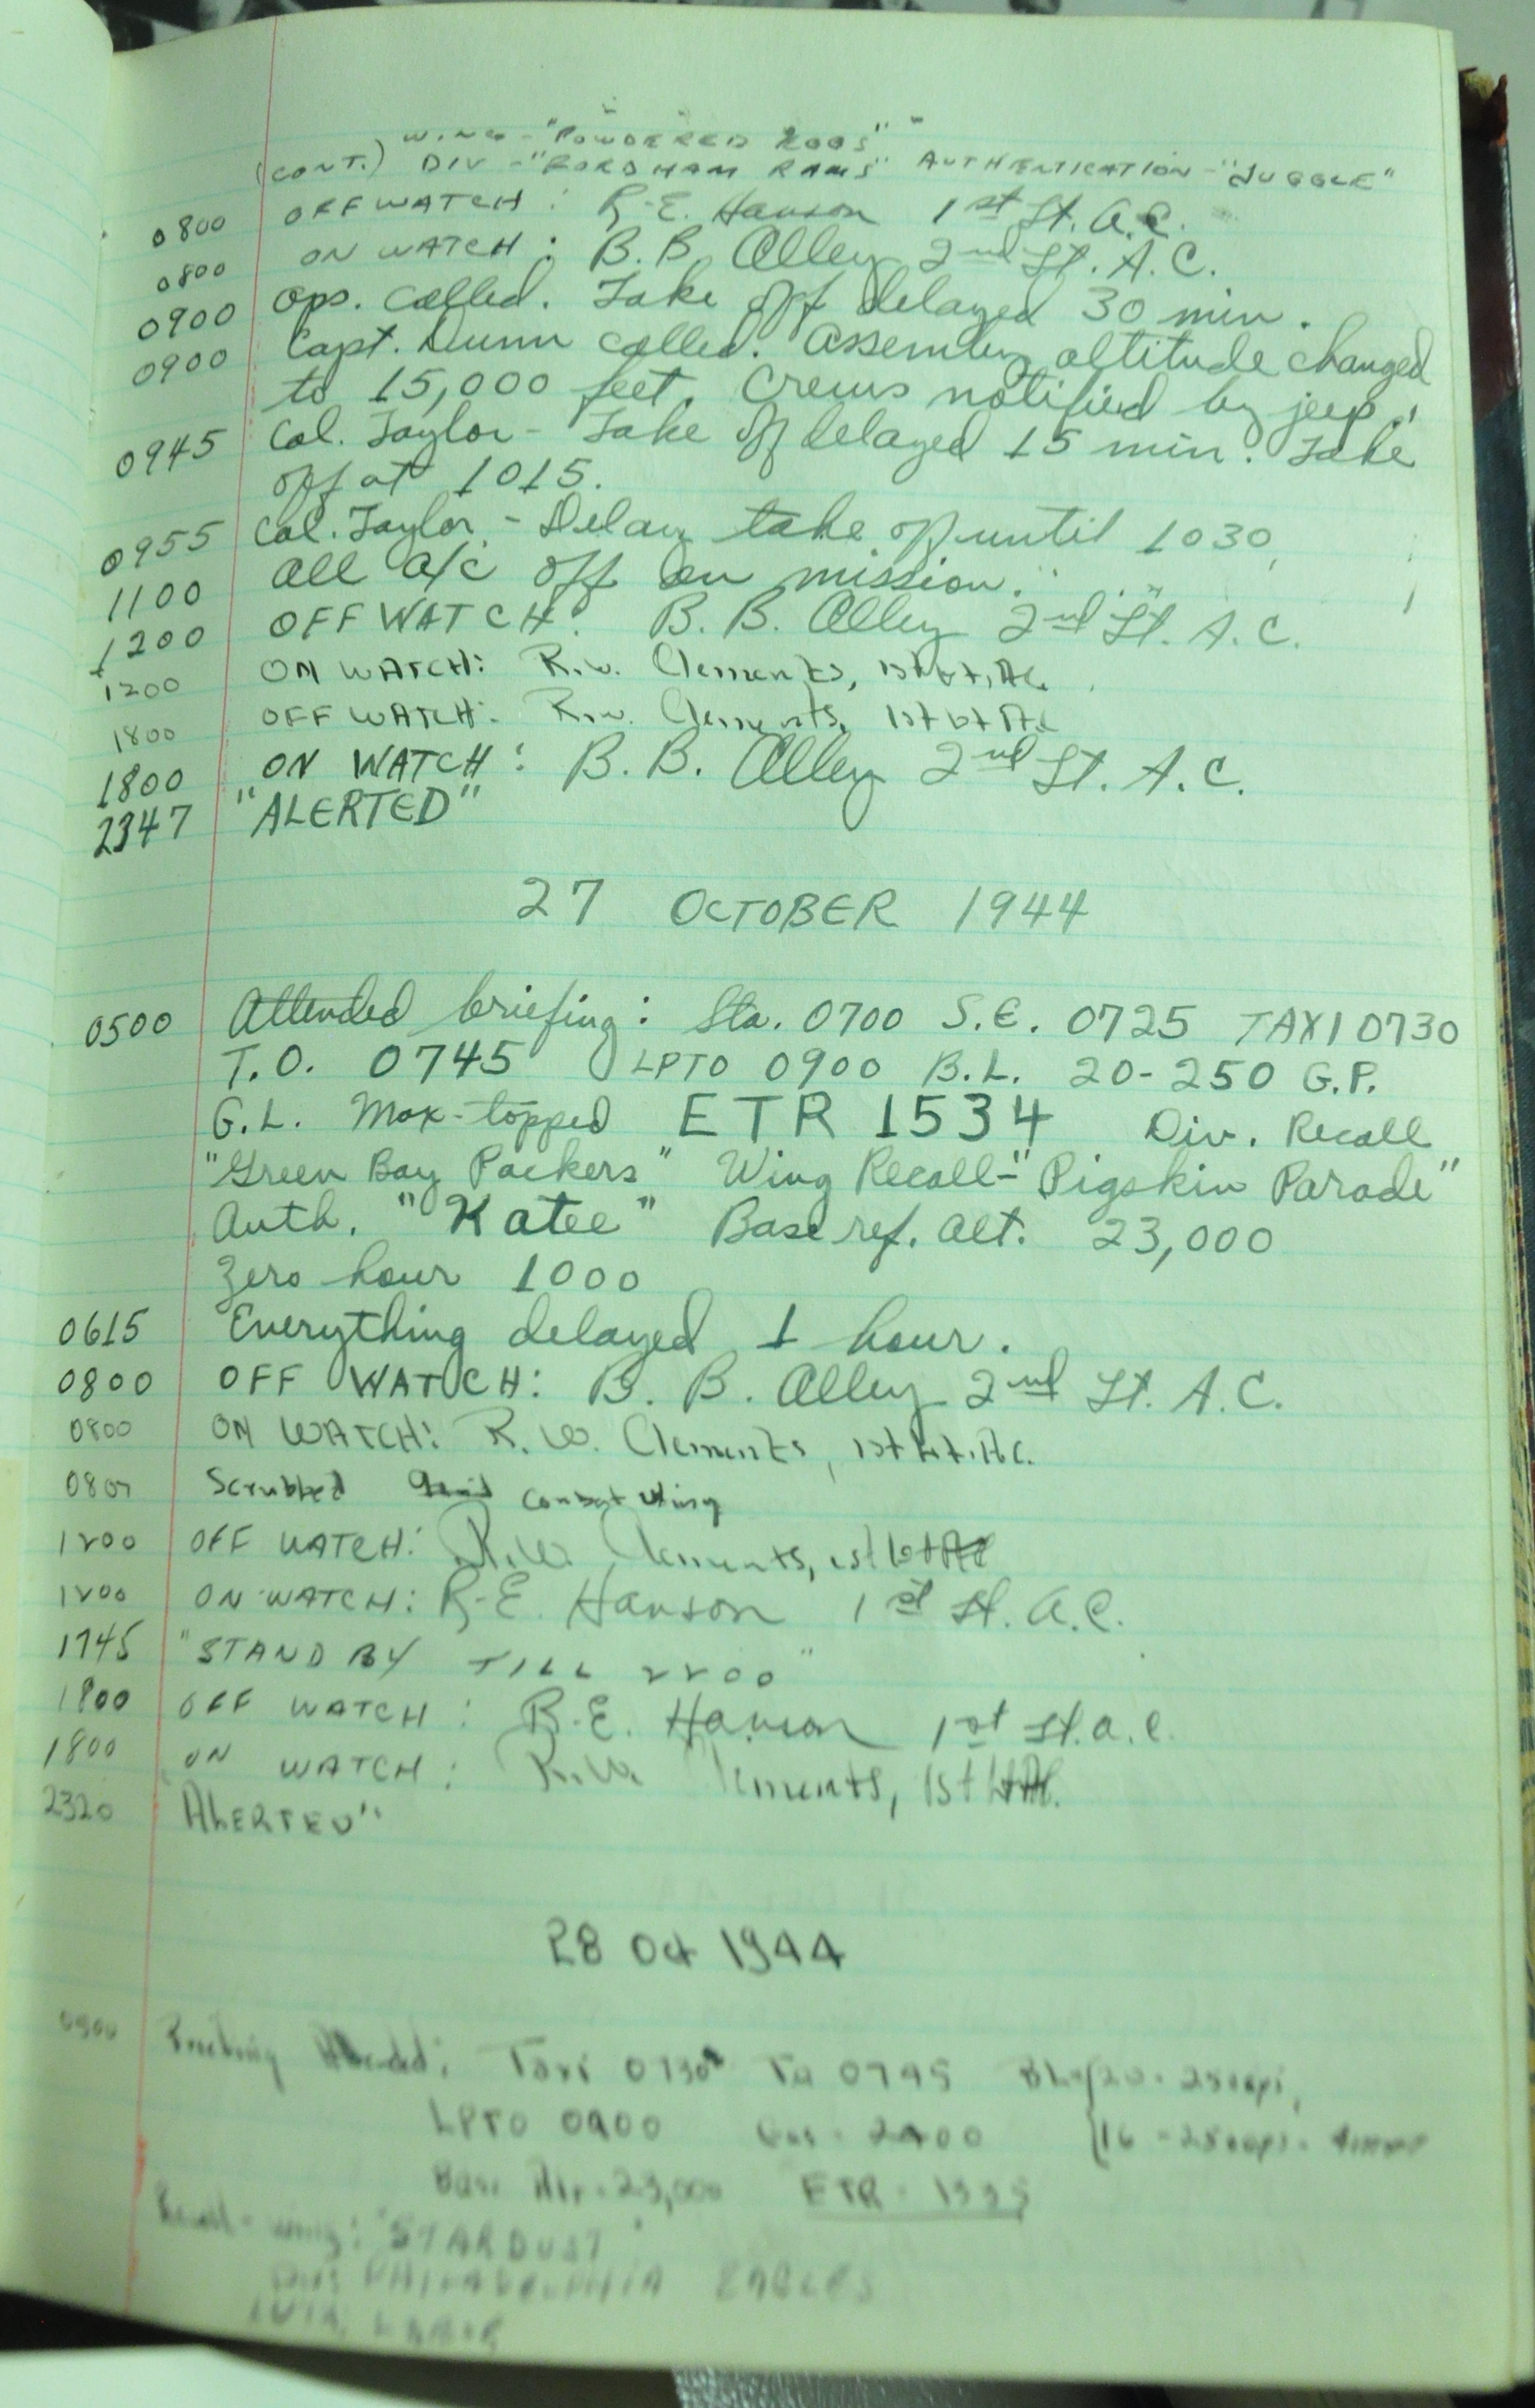 WING - "POWDERED EGGS"
(CONT.) DIV - "FORDHAM RAMS" AUTHENTICATION - "JUGGLE"
0800 OFF WATCH: R.E. Hanson 1st Lt. A.C.
0800 ON WATCH: B.B. Alley 2nd Lt. A.C.
0900 Ops. called. Take off delayed 30 min.
0900 Capt. Dunn called. Assembly altitude changed
to 15,000 feet. Crews notified by jeep.
0945 Col. Taylor - Take off delayed 15 min. Take
off at 1015.
0955 Col. Taylor - Delay take off until 1030
1100 All a/c off on mission.
1200 OFF WATCH: B.B. Alley 2nd Lt. A.C.
1200 ON WATCH: R.W. Clements, 1st Lt, AC.
1800 OFF WATCH: R.W. Clements, 1st Lt AC
1800 ON WATCH: B.B. Alley 2nd Lt. A.C.
2347 "ALERTED"
27 OCTOBER 1944
0500 Attended briefing: Sta. 0700 S.E. 0725 TAXI 0730
T.O. 0745 LPTO 0900 B.L. 20-250 G.P.
G.L. Max-topped ETR 1534 Div. Recall
"Green Bay Packers" Wing Recall - "Pigskin Parade"
Auth. "Katee" Base ref. alt. 23,000
Zero hour 1000
0615 Everything delayed 1 hour.
0800 OFF WATCH: B.B. Alley 2nd Lt. A.C.
0800 ON WATCH: R.W. Clements, 1st Lt. AC.
Scrubbed Combat Wing
1200 OFF WATCH: R.W. Clements, 1st Lt AC
1200 ON WATCH: R.E. Hanson 1st Lt. A.C.
1745 "STAND BY TILL 2200"
1800 OFF WATCH: R.E. Hanson 1st Lt. A.C.
1800 ON WATCH: R.W. Clements, 1st Lt AC.
2320 ALERTED"
28 Oct 1944
0500 Briefing Attended: Taxi 0730 TO 0745
LPTO 0900 Gas - 2400
Base Alt. 23,000 ETR -
Recall - Wing: "STARDUST"
PHILADELPHIA EAGLES